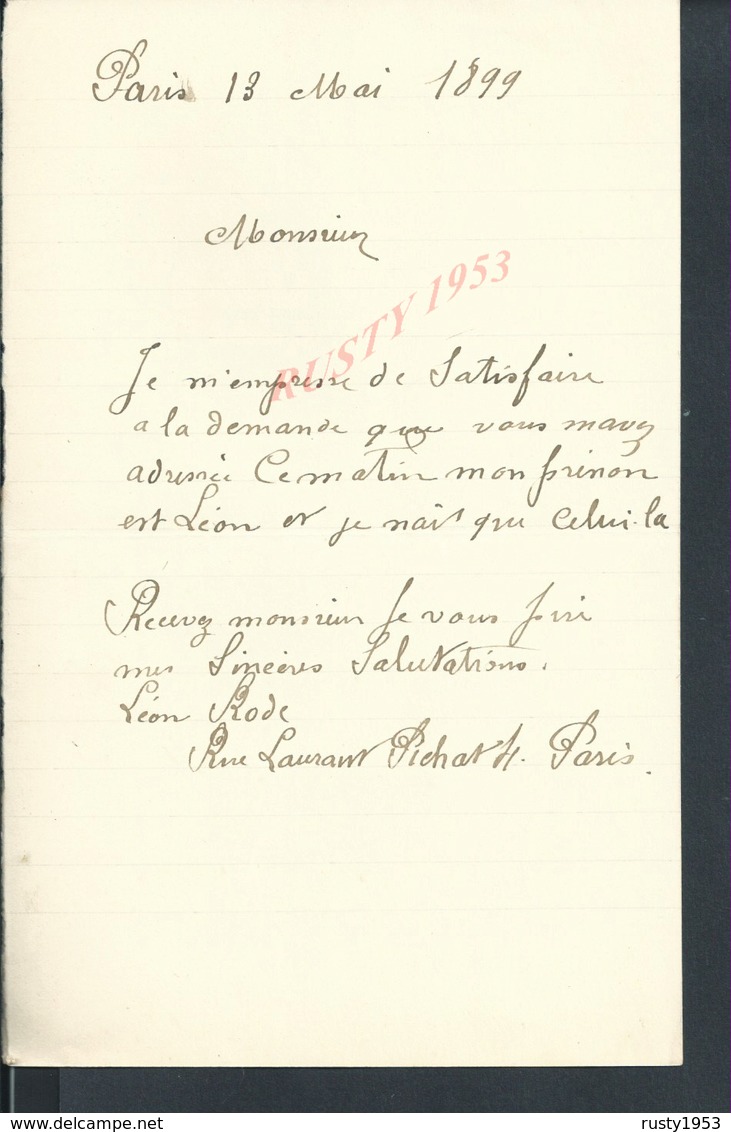 Paris 13 Mai 1899
Monsieur
RUSTY 1953
Je m'empresse de Satisfaire
a la demande que vous mavez
adressée Ce matin mon prénon
est Léon et je nait que Celui-la
Recevez monsieur Je vous prie
mes Sincères Salutations.
Léon Rode
Rue Laurant Pichat 4. Paris.
delcampe.net
rusty1953